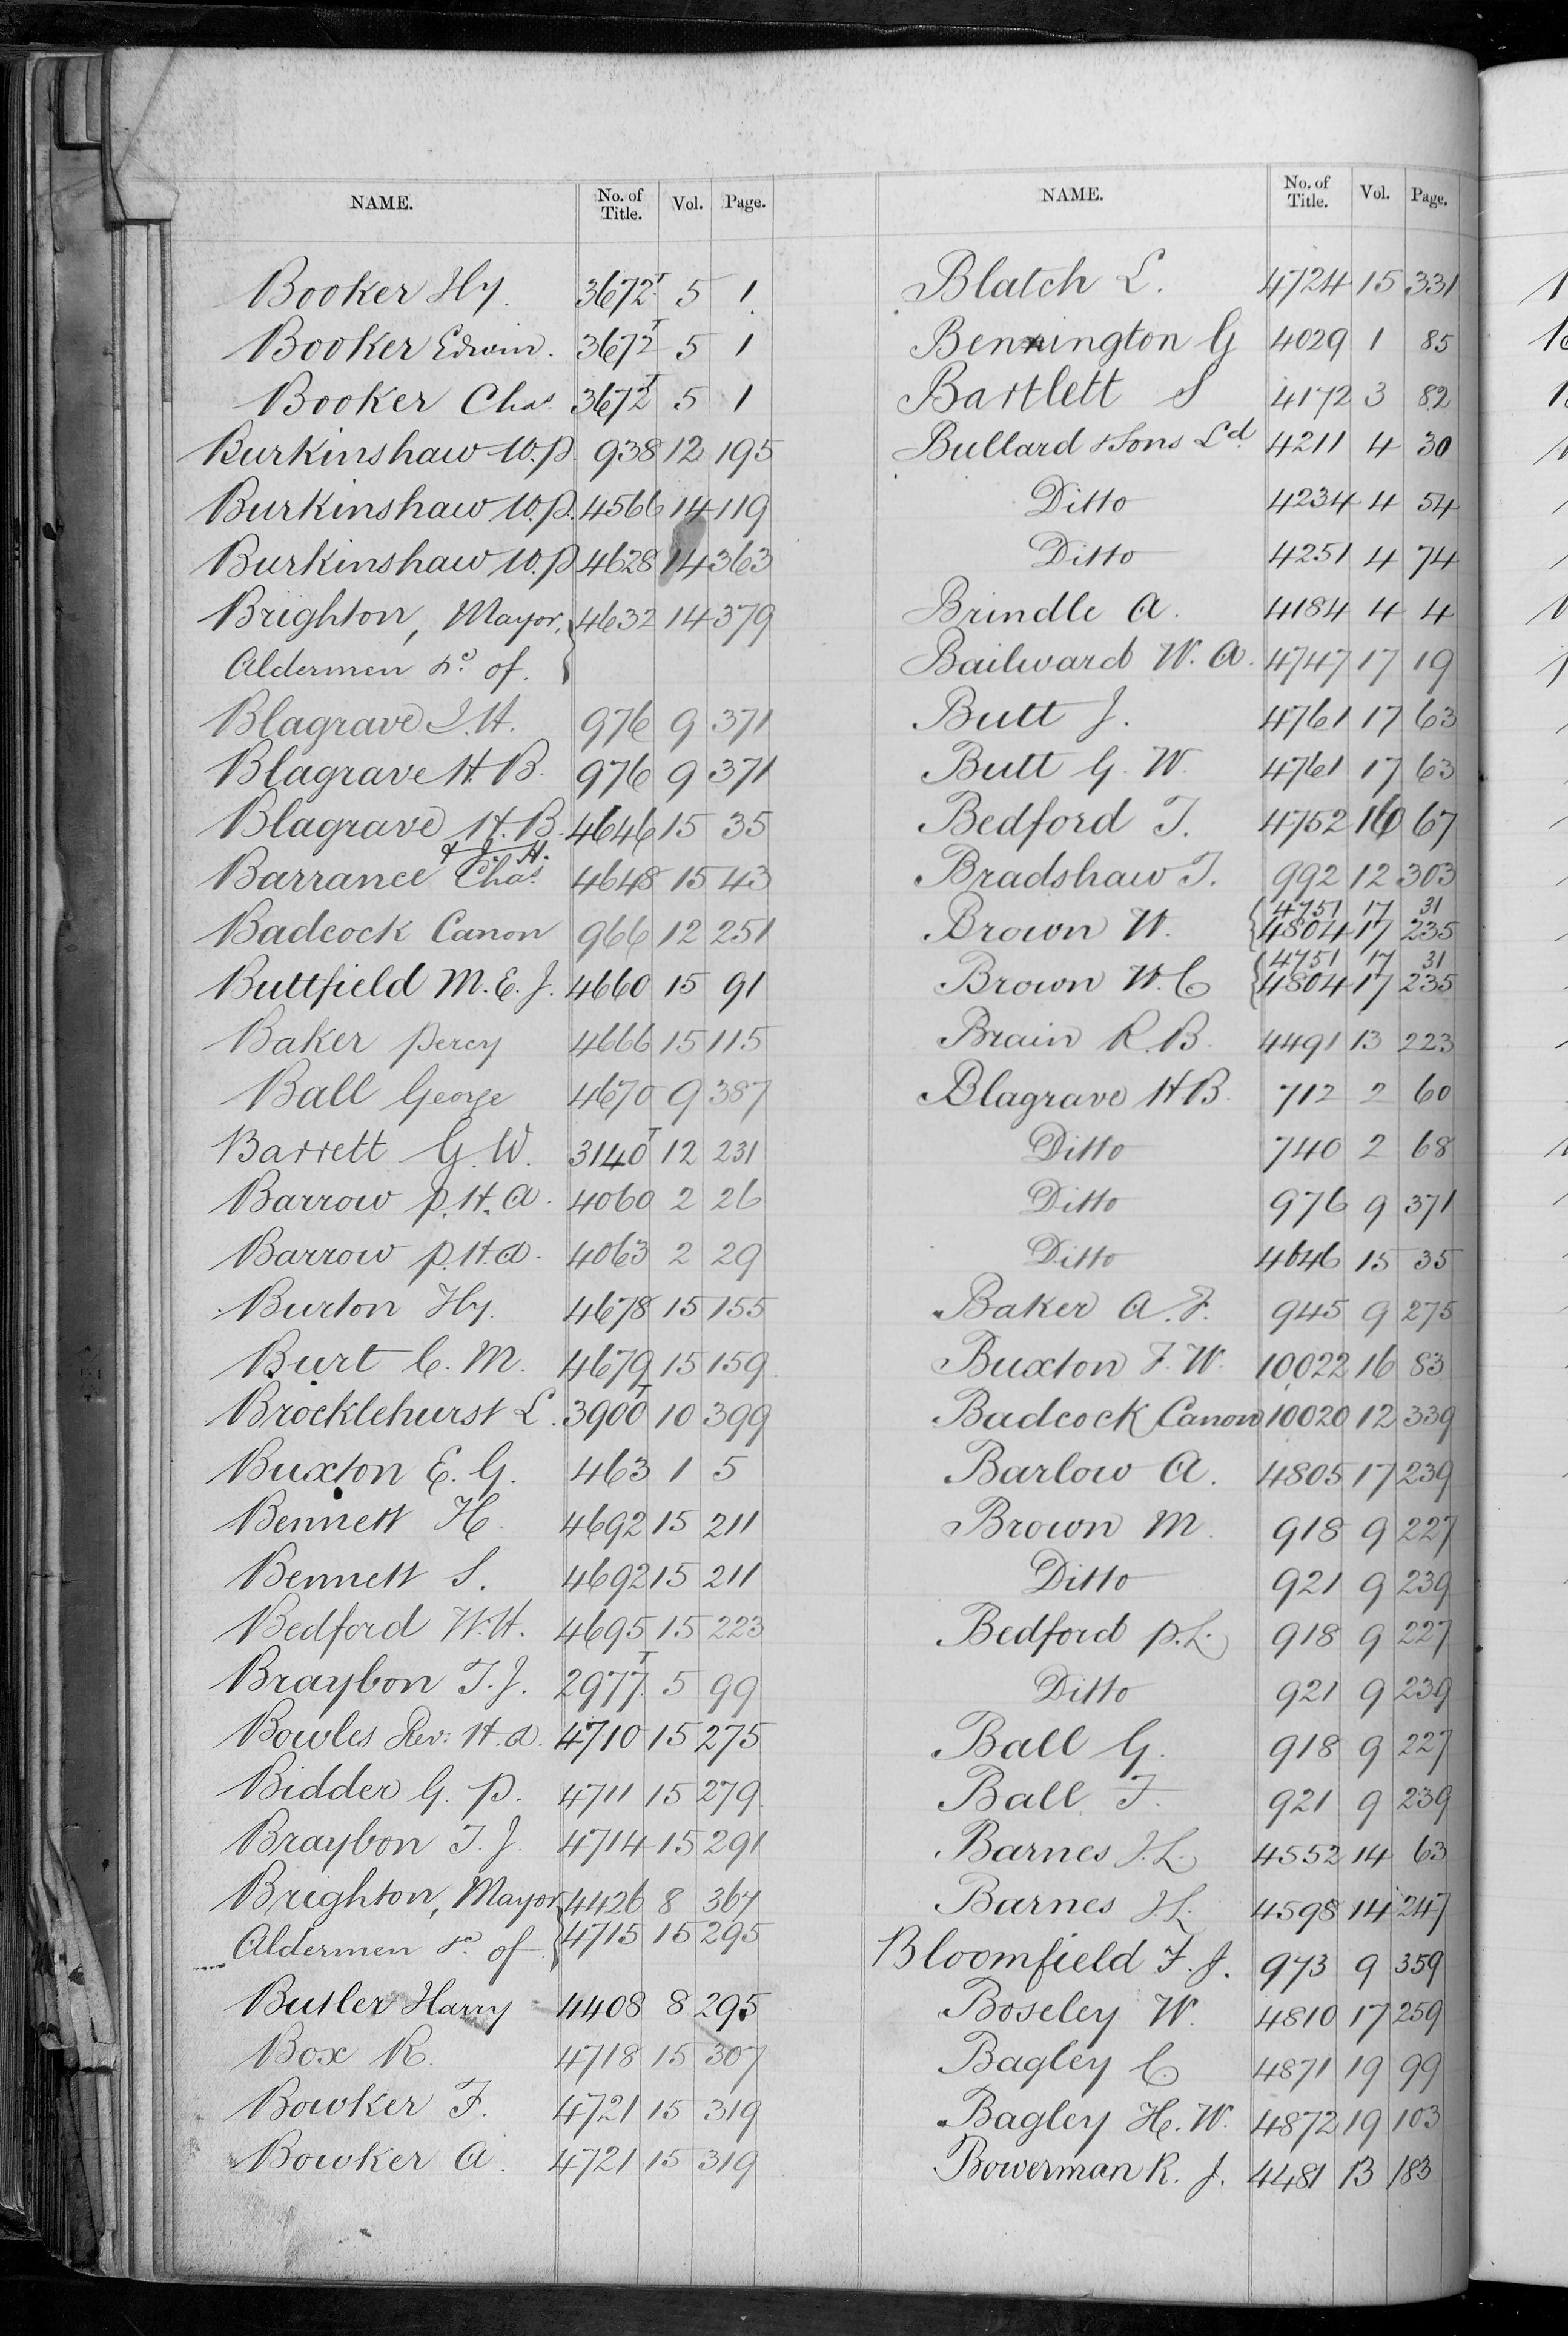 NAME. No. of Title. Vol. Page.
Booker Hy. 3672T 5 1
Booker Edwin. 3672T 5 1
Booker Chas. 3672T 5 1
Burkinshaw W.P. 938 12 195
Burkinshaw W.P. 4566 14 119
Burkinshaw W.P. 4628 14 363
Brighton, Mayor, 4632 14 379
Aldermen &c. of.
Blagrave J.H. 976 9 371
Blagrave H.B. 976 9 371
Blagrave H.B. 4646 15 35
& J. H.
Barrance Chas. 4648 15 43
Badcock Canon 966 12 251
Buttfield M.E.J. 4660 15 91
Baker Percy 4666 15 115
Ball George 4670 9 387
Barrett G.W. 3140T 12 231
Barrow P.H.A. 4060 2 26
Barrow P.H.A. 4063 2 29
Burton Hy. 4678 15 155
Burt C.M. 4679 15 159
Brocklehurst L. 3900T 10 399
Buxton E.G. 463 1 5
Bennett H. 4692 15 211
Bennett S. 4692 15 211
Bedford W.H. 4695 15 223
Braybon T.J. 2977T 5 99
Bowles Rev: H.A. 4710 15 275
Bidder G.P. 4711 15 279
Braybon T.J. 4714 15 291
Brighton, Mayor 4426 8 367
Aldermen &c. of 4715 15 295
Butler Harry 4408 8 295
Box R. 4718 15 307
Bowker F. 4721 15 319
Bowker A. 4721 15 319
NAME. No. of Title. Vol. Page.
Blatch L. 4724 15 331
Bennington G 4029 1 85
Bartlett S 4172 3 82
Bullard & Sons Ld. 4211 4 30
Ditto 4234 4 54
Ditto 4251 4 74
Brindle A. 4184 4 4
Bailward W.A. 4747 17 19
Butt J. 4761 17 63
Butt G.W. 4761 17 63
Bedford T. 4752 16 67
Bradshaw T. 992 12 303
4751 17 31
Brown W. 4804 17 235
4751 17 31
Brown W.C 4804 17 235
Brain R.B. 4491 13 223
Blagrave H.B. 712 2 60
Ditto 740 2 68
Ditto 976 9 371
Ditto 4646 15 35
Baker A.F. 945 9 275
Buxton F.W. 10022 16 83
Badcock Canon 10020 12 339
Barlow A. 4805 17 239
Brown M. 918 9 227
Ditto 921 9 239
Bedford P.L. 918 9 227
Ditto 921 9 239
Ball G. 918 9 227
Ball F. 921 9 239
Barnes J.L. 4552 14 63
Barnes J.L. 4598 14 247
Bloomfield F.J. 973 9 359
Boseley W. 4810 17 259
Bagley C. 4871 19 99
Bagley H.W. 4872 19 103
Bowerman R.J. 4481 13 183